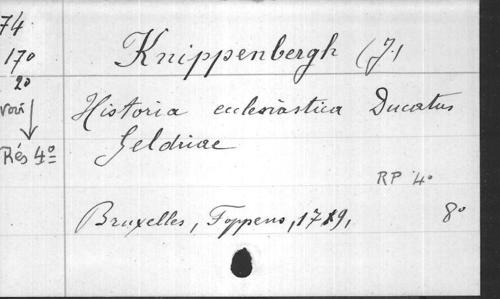 74
170
20
voir
Rés 4°
Knippenbergh (J.)
Historia ecclesiastica Ducatus
Geldriae
RP 4°
Bruxelles, Foppens, 1719,
8°